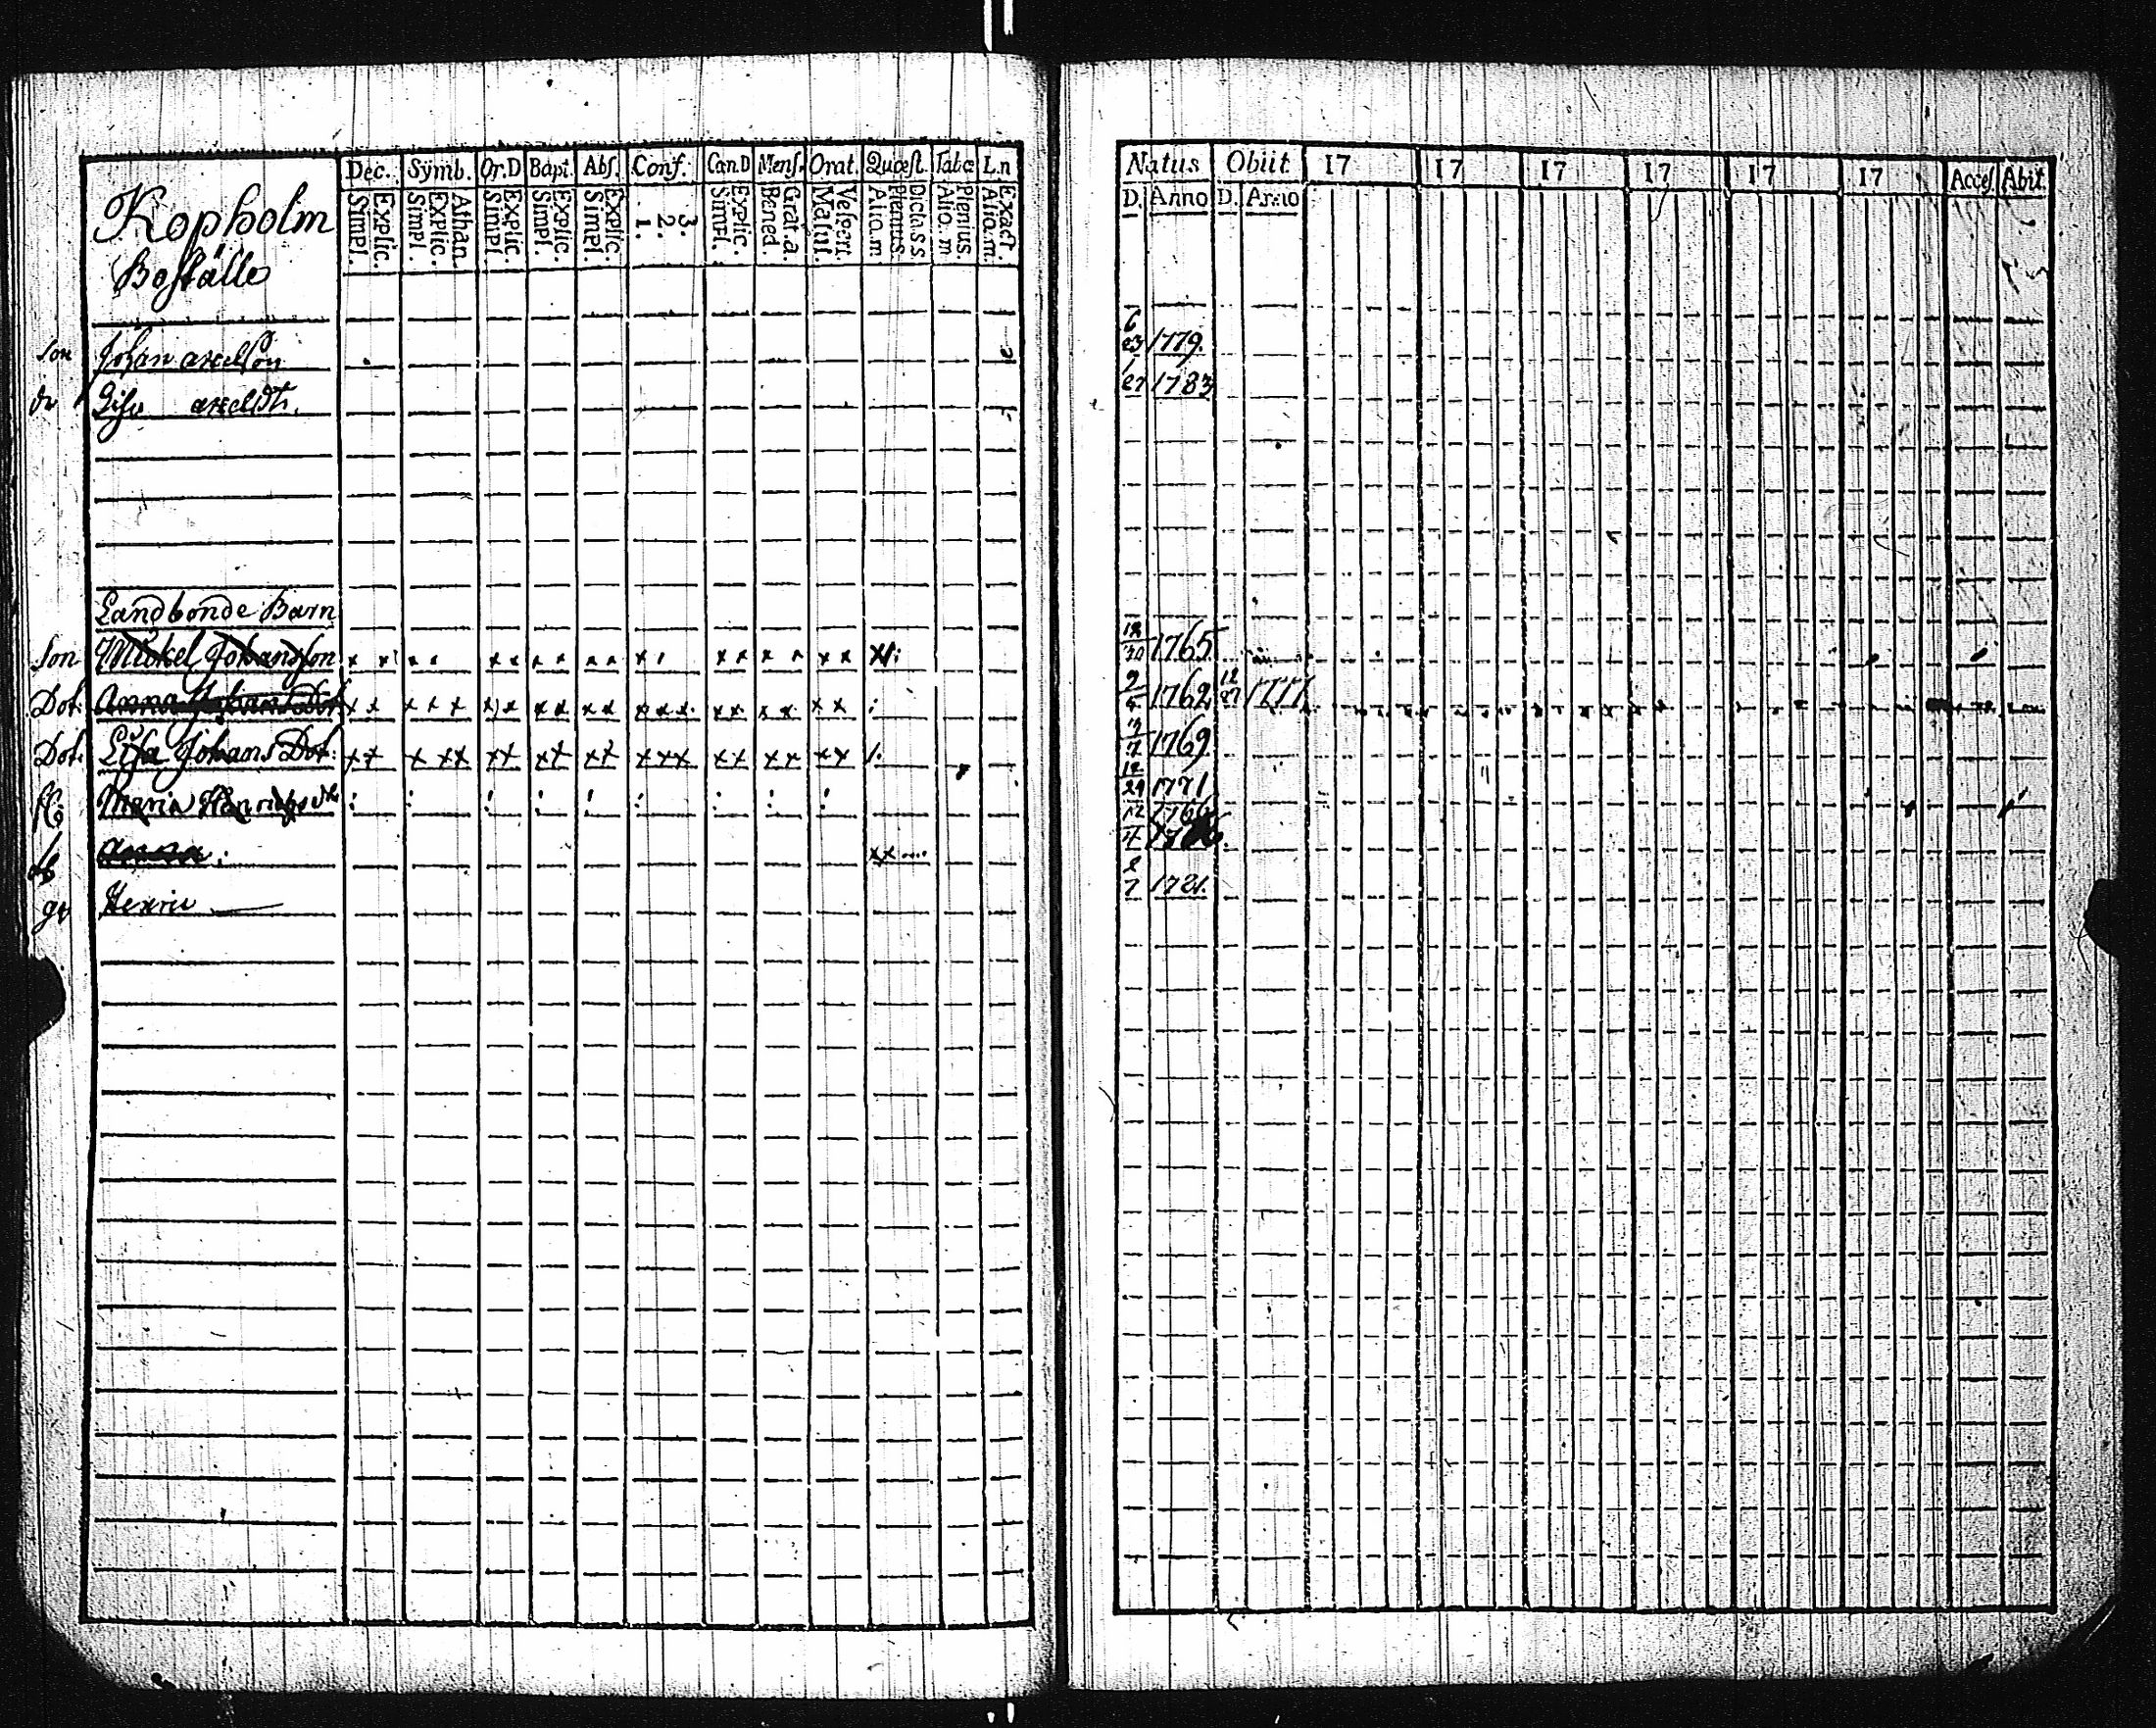 Dec. Symb. Or.D Bapt. Abs. Conf. Can.D Mens. Orat. Quæst. Tabæ L.n
Simpl. Explic. Simpl. Explic. Athan. Simpl. Explic. Simpl. Explic. Simpl. Explic. 1. 2. 3. Simpl. Explic. Bened. Grat. a. Matut. Vespert. Alio. m. Plenius. Dicta. s. s. Alio. m Plenius. Alio. m. Exact.
Kopholm
Boställe
Son Johan axelson
dr Lisa axeldtr.
Landbonde Barn
Son Mickel Johansson x x x x x x x x x x x x x x
Dot. Anna Johans Dot x x x x x x x x x x x x x x x x x x x x
Dot. Lisa Johans Dot: x x x x x x x x x x x x x x x x x x x x
Maria Henricsdtr
Anna xx
Henric
Natus Obiit 17 17 17 17 17 17 Acces Abit.
D. Anno D. Anno
6
23 1779.
1
27 1783
12
20 1765
9
5 1762 12
27 1777
1769
12
29 1771
12 1766
8
7 1721.